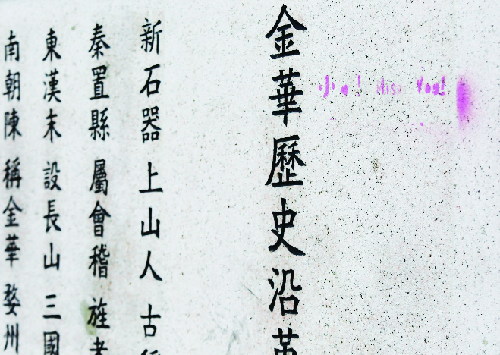 金華歷史沿革
新石器上山人古
秦置縣屬會稽旌孝
東漢末設長山三國
南朝陳稱金華婺州